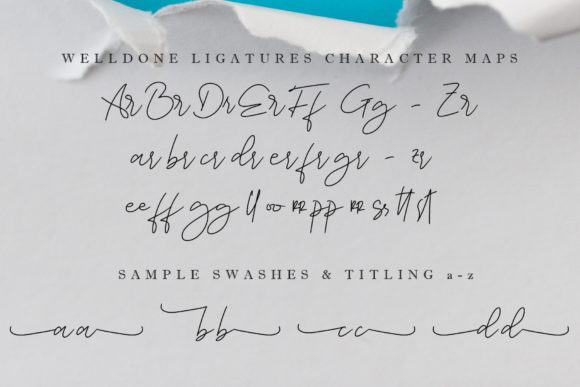 WELLDONE LIGATURES CHARACTER MAPS
Ar Br Dr Er Ff Gg - Zr
ar br cr dr er fr gr - zr
ee ff gg ll oo pp ss tt st
SAMPLE SWASHES & TITLING a-z
aa bb cc dd